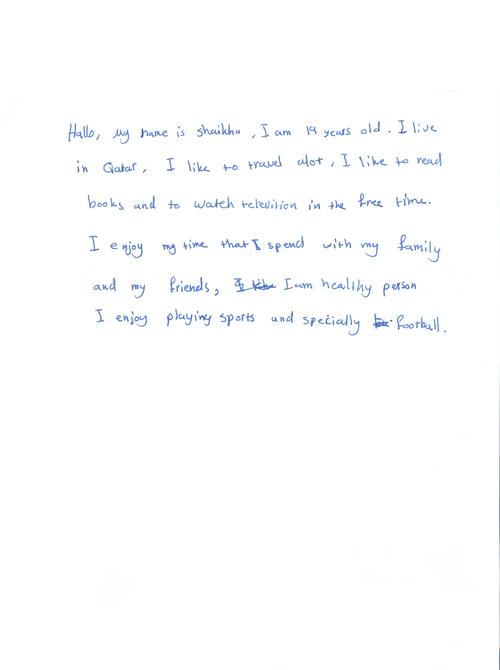 Hallo, My name is shaikha, I am 19 years old. I live
in Qatar, I like to travel alot, I like to read
books and to watch televition in the free time.
I enjoy my time that I spend with my family
and my friends, I like I am healthy person
I enjoy playing sports and specially football.